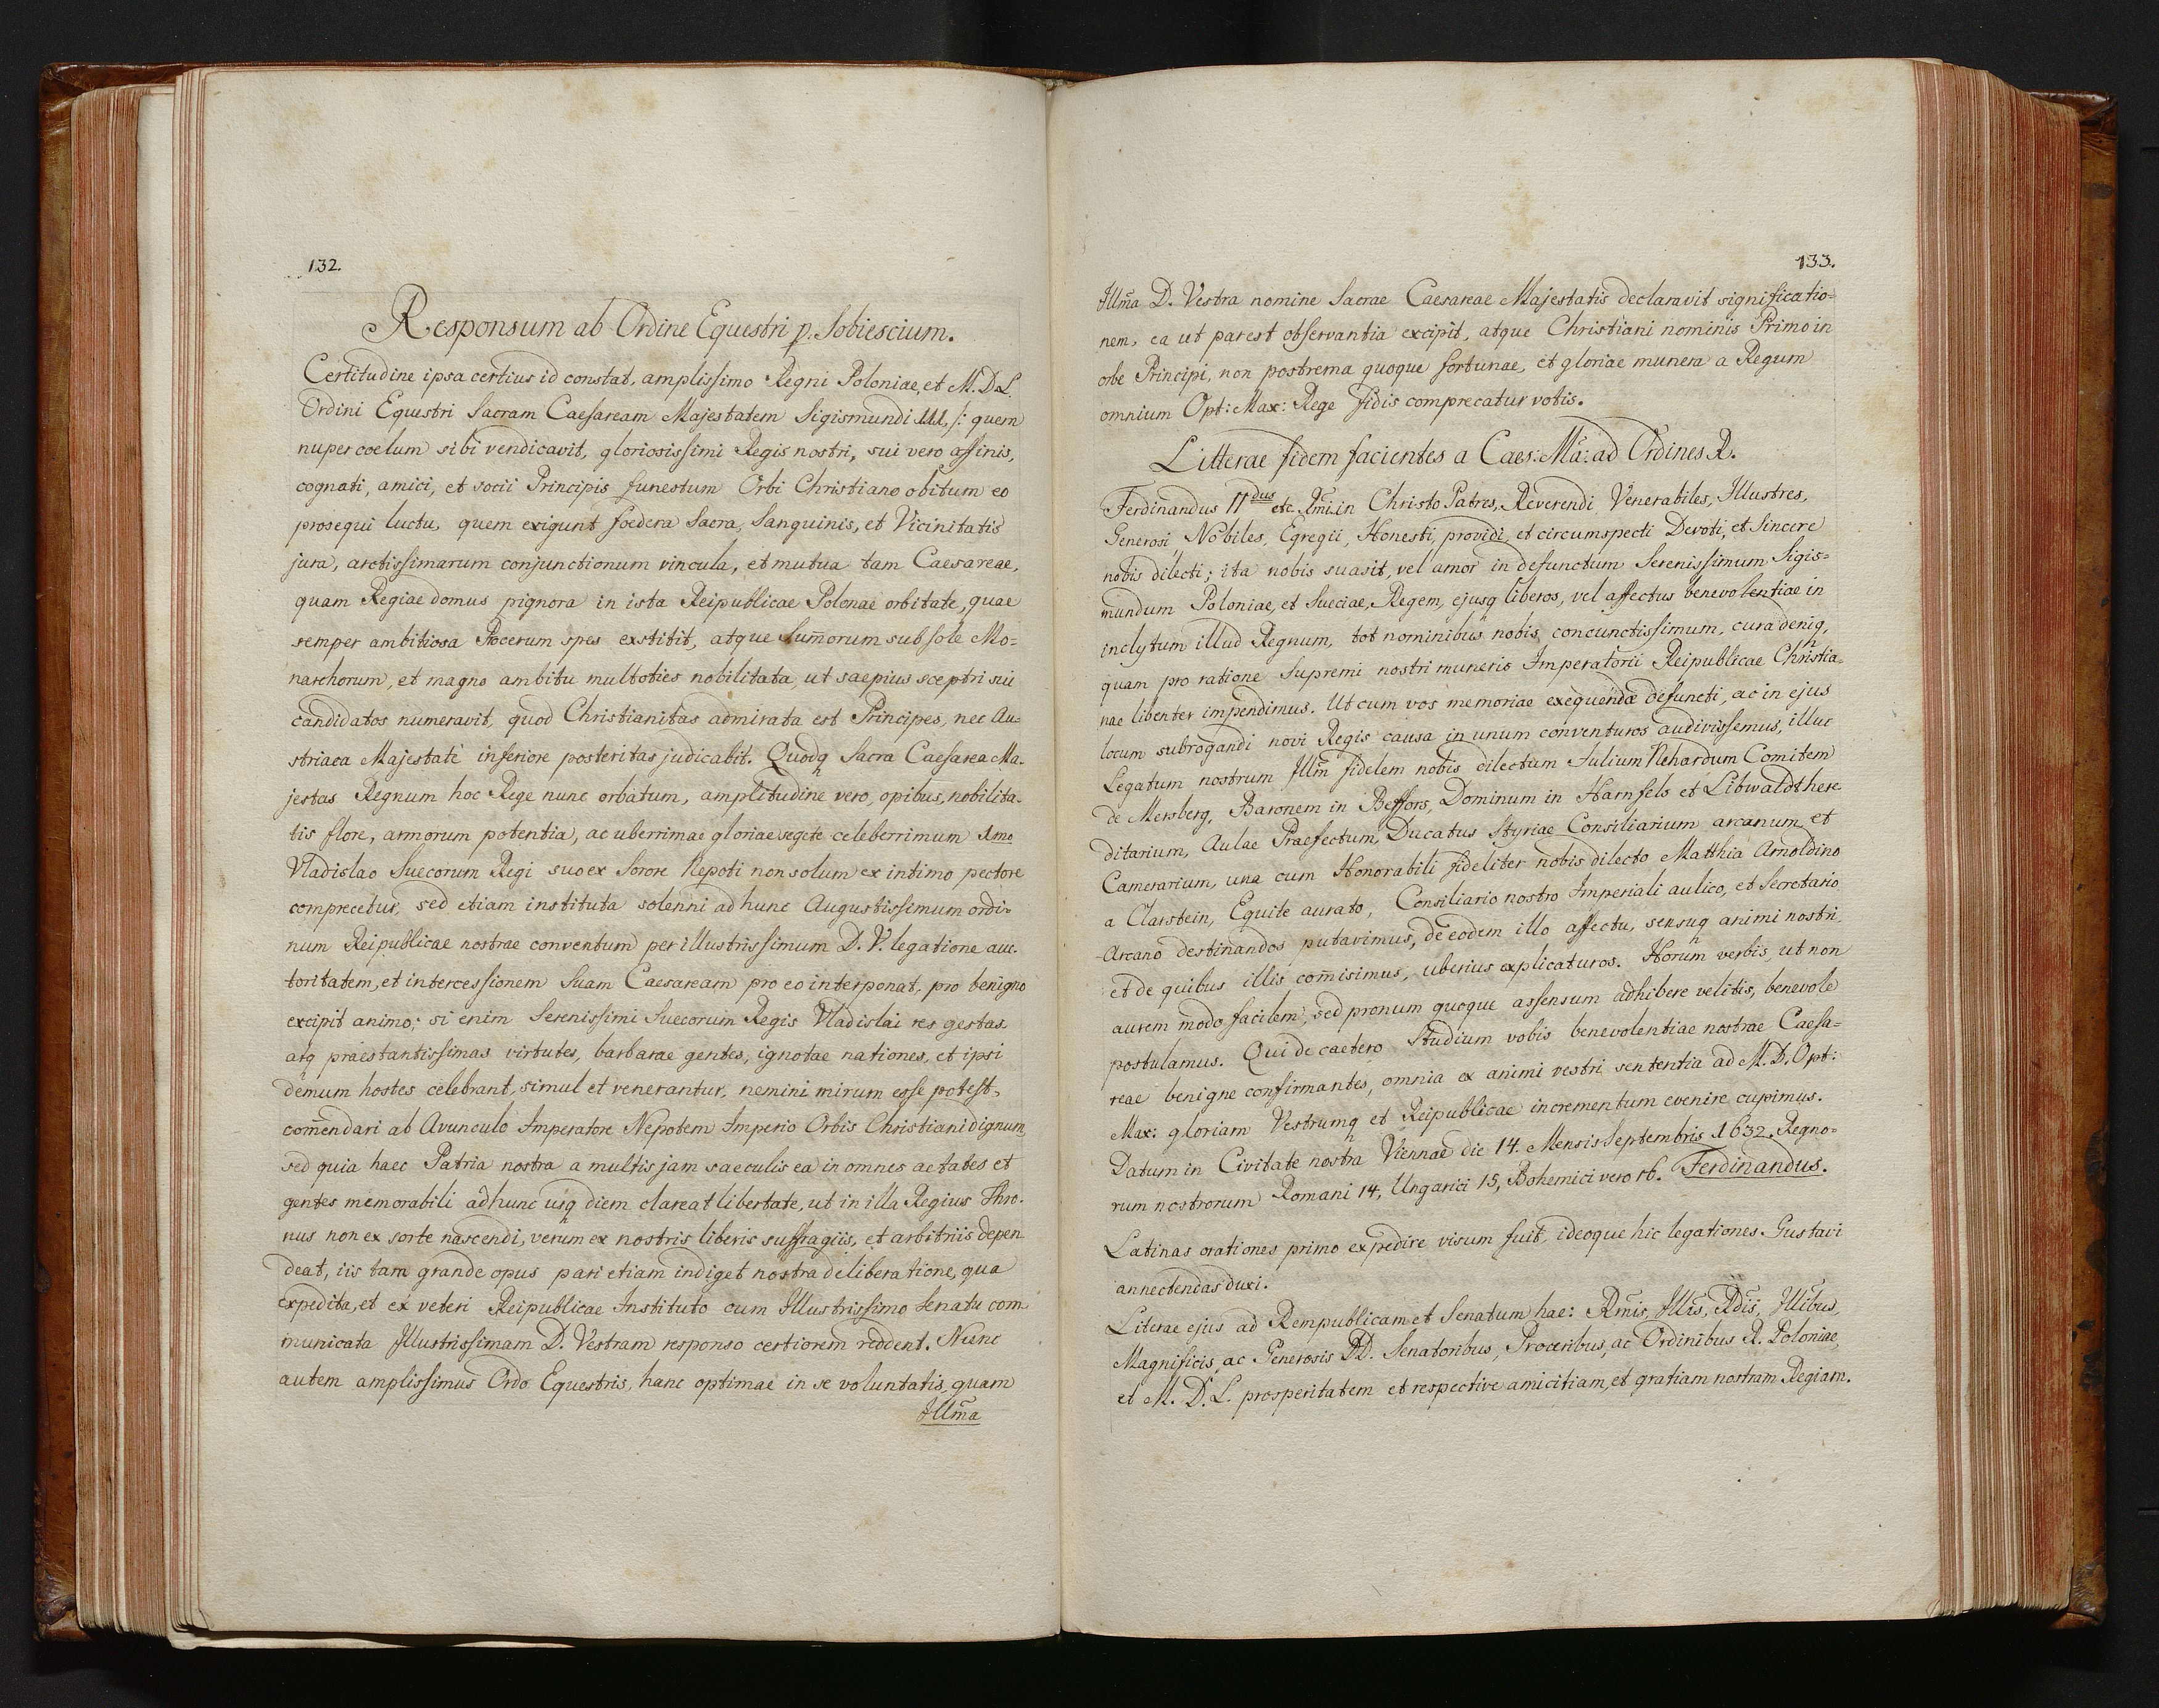 132.
Responsum ab Ordine Equestri p. Sobiescium.
Certitudine ipsa certius id constat, amplissimo Regni Poloniae, et M. D. L.
Ordini Equestri Sacram Caesaream Majestatem Sigismundi III, /: quem
nuper coelum sibi vendicavit, gloriosissimi Regis nostri, sui vero affinis,
cognati, amici, et socii Principis funestum Orbi Christiano obitum eo
prosequi luctu, quem exigunt foedera Sacra, Sanguinis, et Vicinitatis
jura, arctissimarum conjunctionum vincula, et mutua tam Caesareae,
quam Regiae domus pignora in ista Reipublicae Polonae orbitate, quae
semper ambitiosa Procerum spes exstitit, atque Sum̄orum sub sole Mo=
narchorum, et magno ambitu multoties nobilitata, ut saepius sceptri sui
candidatos numeravit, quod Christianitas admirata est Principes, nec Au=
striaca Majestate inferiore posteritas judicabit. Quodq Sacra Caesarea Ma-
jestas Regnum hoc Rege nunc orbatum, amplitudine vero, opibus, nobilita-
tis flore, armorum potentia, ac uberrimae gloriae segete celeberrimum Smo
Vladislao Suecorum Regi suo ex Sorore Nepoti non solum ex intimo pectore
comprecetur, sed etiam instituta solenni ad hunc Augustissimum ordi-
num Reipublicae nostrae conventum per illustrissimum D. V. legatione auc-
toritatem, et intercessionem Suam Caesaream pro eo interponat, pro benigno
excipit animo; si enim Serenissimi Suecorum Regis Vladislai res gestas
atq praestantissimas virtutes, barbarae gentes, ignotae nationes, et ipsi
demum hostes celebrant, simul et venerantur, nemini mirum esse potest,
com̄endari ab Avunculo Imperatore Nepotem Imperio Orbis Christiani dignum,
sed quia haec Patria nostra a multis jam saeculis ea in omnes aetates et
gentes memorabili adhunc usq diem clareat libertate, ut in illa Regius Thro-
nus non ex sorte nascendi, verum ex nostris liberis suffragiis, et arbitriis depen
deat, iis tam grande opus pari etiam indiget nostra deliberatione, qua
expedita, et ex veteri Reipublicae Instituto cum Illustrissimo Senatu com
municata Illustrissimam D. Vestram responso certiorem reddent. Nunc
autem amplissimus Ordo Equestris, hanc optimae in se voluntatis, quam
Illm̄a
133.
Illm̄a D. Vestra nomine Sacrae Caesareae Majestatis declaravit significatio=
nem, ea ut par est observantia excipit, atque Christiani nominis Primo in
orbe Principi, non postrema quoque fortunae, et gloriae munera a Regum
omnium Opt: Max: Rege fidis comprecatur votis.
Litterae fidem facientes a Caes: Mā: ad Ordines R.
Ferdinandus IIdus etc Rm̄i in Christo Patres, Reverendi, Venerabiles, Illustres,
Generosi, Nobiles, Egregii, Honesti, providi, et circumspecti Devoti, et Sincere
nobis dilecti; ita nobis suasit, vel amor in defunctum Serenissimum Sigis=
mundum Poloniae, et Sueciae, Regem, ejusq liberos, vel affectus benevolentiae in
inclytum illud Regnum, tot nominibus nobis concunctissimum, cura deniq,
quam pro ratione Supremi nostri muneris Imperatorii Reipublicae Christia-
nae libenter impendimus. Ut cum vos memoriae exequendae defuncti, ac in ejus
locum subrogandi novi Regis causa in unum conventuros audivissemus, illuc
Legatum nostrum Illm̄ fidelem nobis dilectum Julium Nehardum Comitem
de Mersberg, Baronem in Beffors, Dominum in Harnfels et Libwaldt here
ditarium, Aulae Praefectum, Ducatus Styriae Consiliarium arcanum, et
Camerarium, una cum Honorabili fideliter nobis dilecto Matthia Arnoldino
a Clarstein, Equite aurato, Consiliario nostro Imperiali aulico, et Secretario
Arcano destinandos putavimus, de eodem illo affectu, sensuq animi nostri,
et de quibus illis com̄isimus, uberius explicaturos. Horum verbis, ut non
aurem modo facilem, sed pronum quoque assensum adhibere velitis, benevole
postulamus. Qui de caetero Studium vobis benevolentiae nostrae Caesa=
reae benigne confirmantes, omnia ex animi vestri sententia ad M. D. Opt:
Max: gloriam Vestrumq et Reipublicae incrementum evenire cupimus.
Datum in Civitate nostra Viennae die 14. Mensis Septembris 1632. Regno=
rum nostrorum Romani 14, Ungarici 15, Bohemici vero 16. Ferdinandus.
Latinas orationes primo expedire visum fuit, ideoque hic legationes Gustavi
annectendas duxi.
Literae ejus ad Rempublicam et Senatum hae: Rm̄is, Illīs, Rdīs, Illībus,
Magnificis, ac Generosis DD. Senatoribus, Proceribus, ac Ordinibus R. Poloniae,
et M. D. L. prosperitatem et respective amicitiam, et gratiam nostram Regiam.